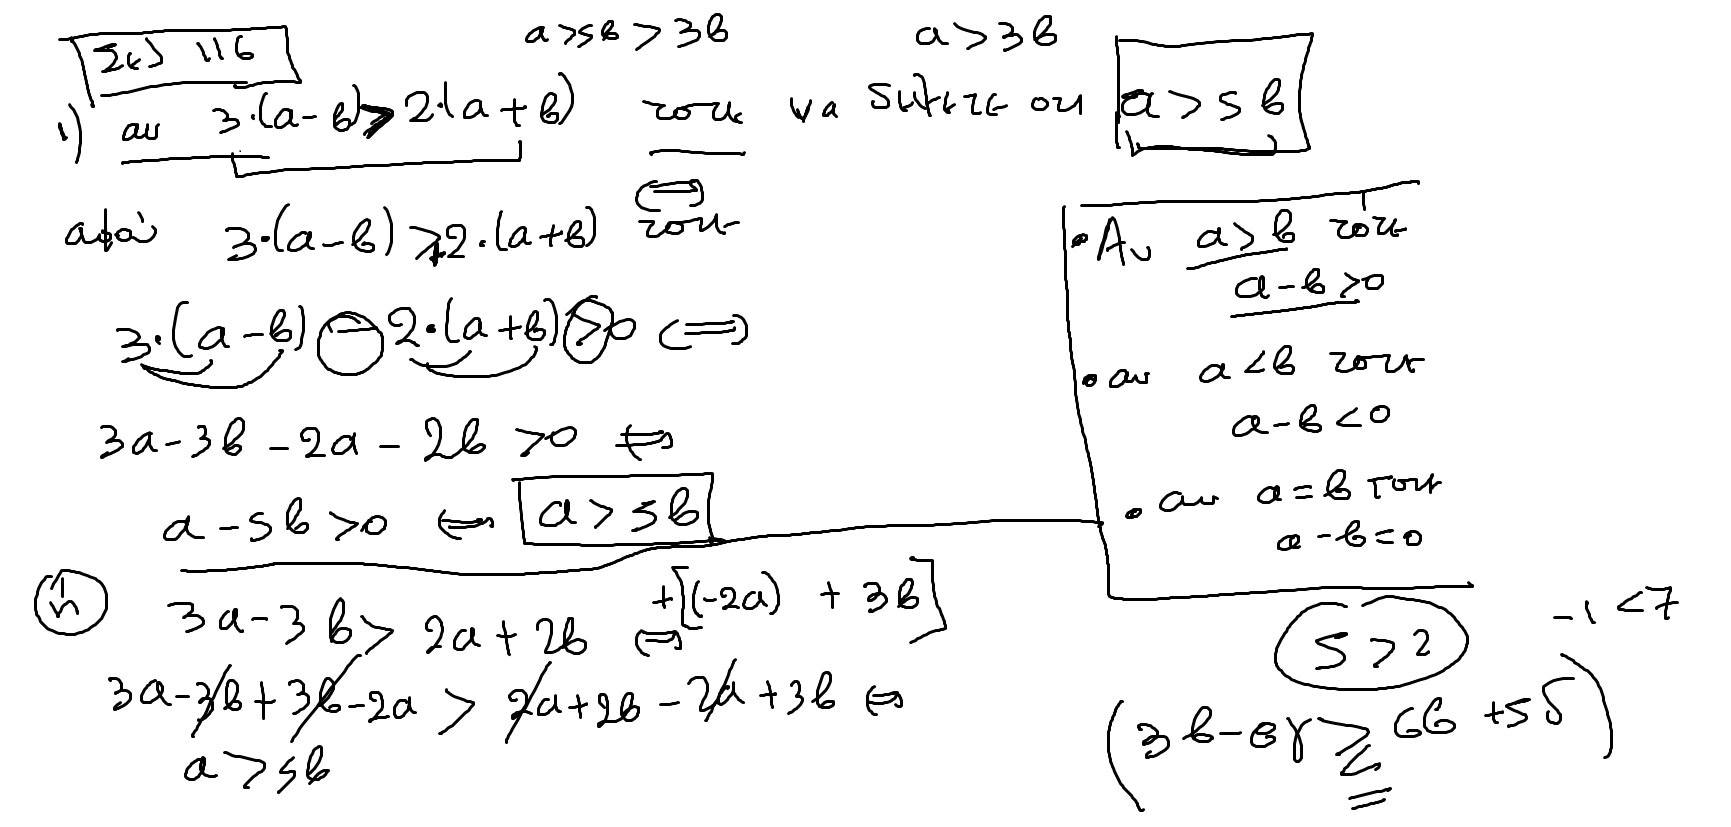 Σελ 116
a>5β>3β
a>3β
1) αν 3·(a-β)>2·(a+β) τοτε να δειξετε οτι a>5β
αφού 3·(a-β)>2·(a+β) τοτε
3·(a-β)-2·(a+β)>0 ⟺
3a-3β-2a-2β>0 ⟺
a-5β>0 ⟺ a>5β
ή 3a-3β>2a+2β ⟺ +[(-2a)+3β]
3a-3β+3β-2a>2a+2β-2a+3β ⟺
a>5β
• Αν a>β τοτε
a-β>0
• αν a<β τοτε
a-β<0
• αν a=β τοτε
a-β=0
5>2
-1<7
(3β-8γ≥6β+5δ)